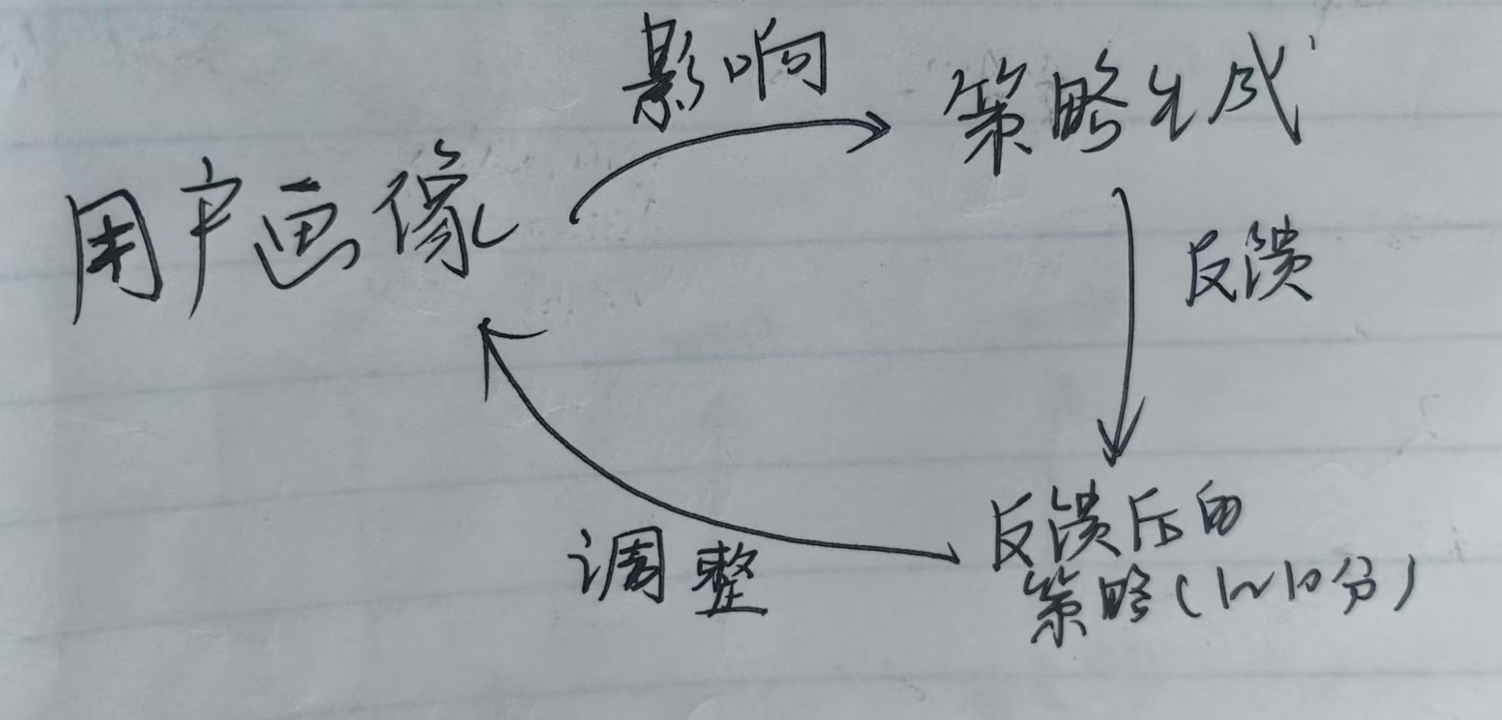 影响
策略生成
用户画像
反馈
反馈后的
策略(1~10分)
调整